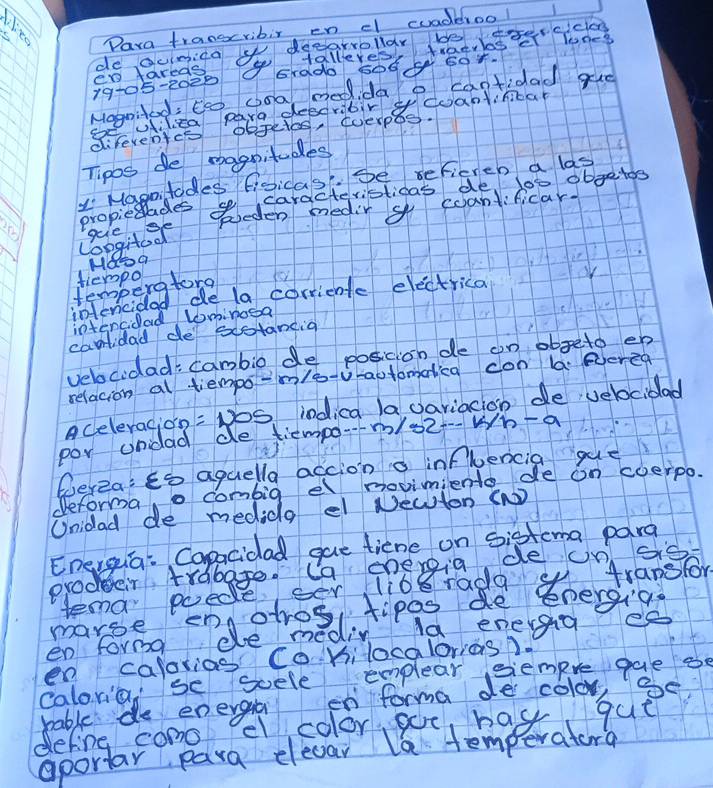 Para transcribir en el cuaderno
de quimica y desarrollar los egercicios
en tareas y talleres, traerlos el lunes
19-05-2025 grado 606 y 607.
Magnitud: Es una medida o cantidad que
se utiliza para describir y cuantificar
diferentes obgetos, cuerpos.
Tipos de magnitudes
1: Magnitudes fisicas: Se refieren a las
propiedades y caracteristicas de los obgetos
que se pueden medir y cuantificar.
Longitud
Masa
tiempo
temperatura
intencidad de la corriente eléctrica
intencidad luminosa
cantidad de sustancia
velocidad: cambio de posicion de un obgeto en
relacion al tiempo - m/s - v - automatica con la fuerza
Aceleración = Nos indica la variacion de velocidad
por unidad de tiempo --- m/s2 --- k/h - a
fuerza: Es aquella accion o influencia que
deforma o cambia el movimiento de un cuerpo.
Unidad de medida el Newton (N)
Energia: Capacidad que tiene un sistema para
producir trabago. La energia de un sis-
tema puede ser liberada y transfor
marse en otros tipos de energia.
en forma de medir la energia es
en calorias (o kilocalorias).
caloria, se suele emplear siempre que se
hable de energia en forma de color, se
define como el color que hay que
aportar para elevar la temperatura